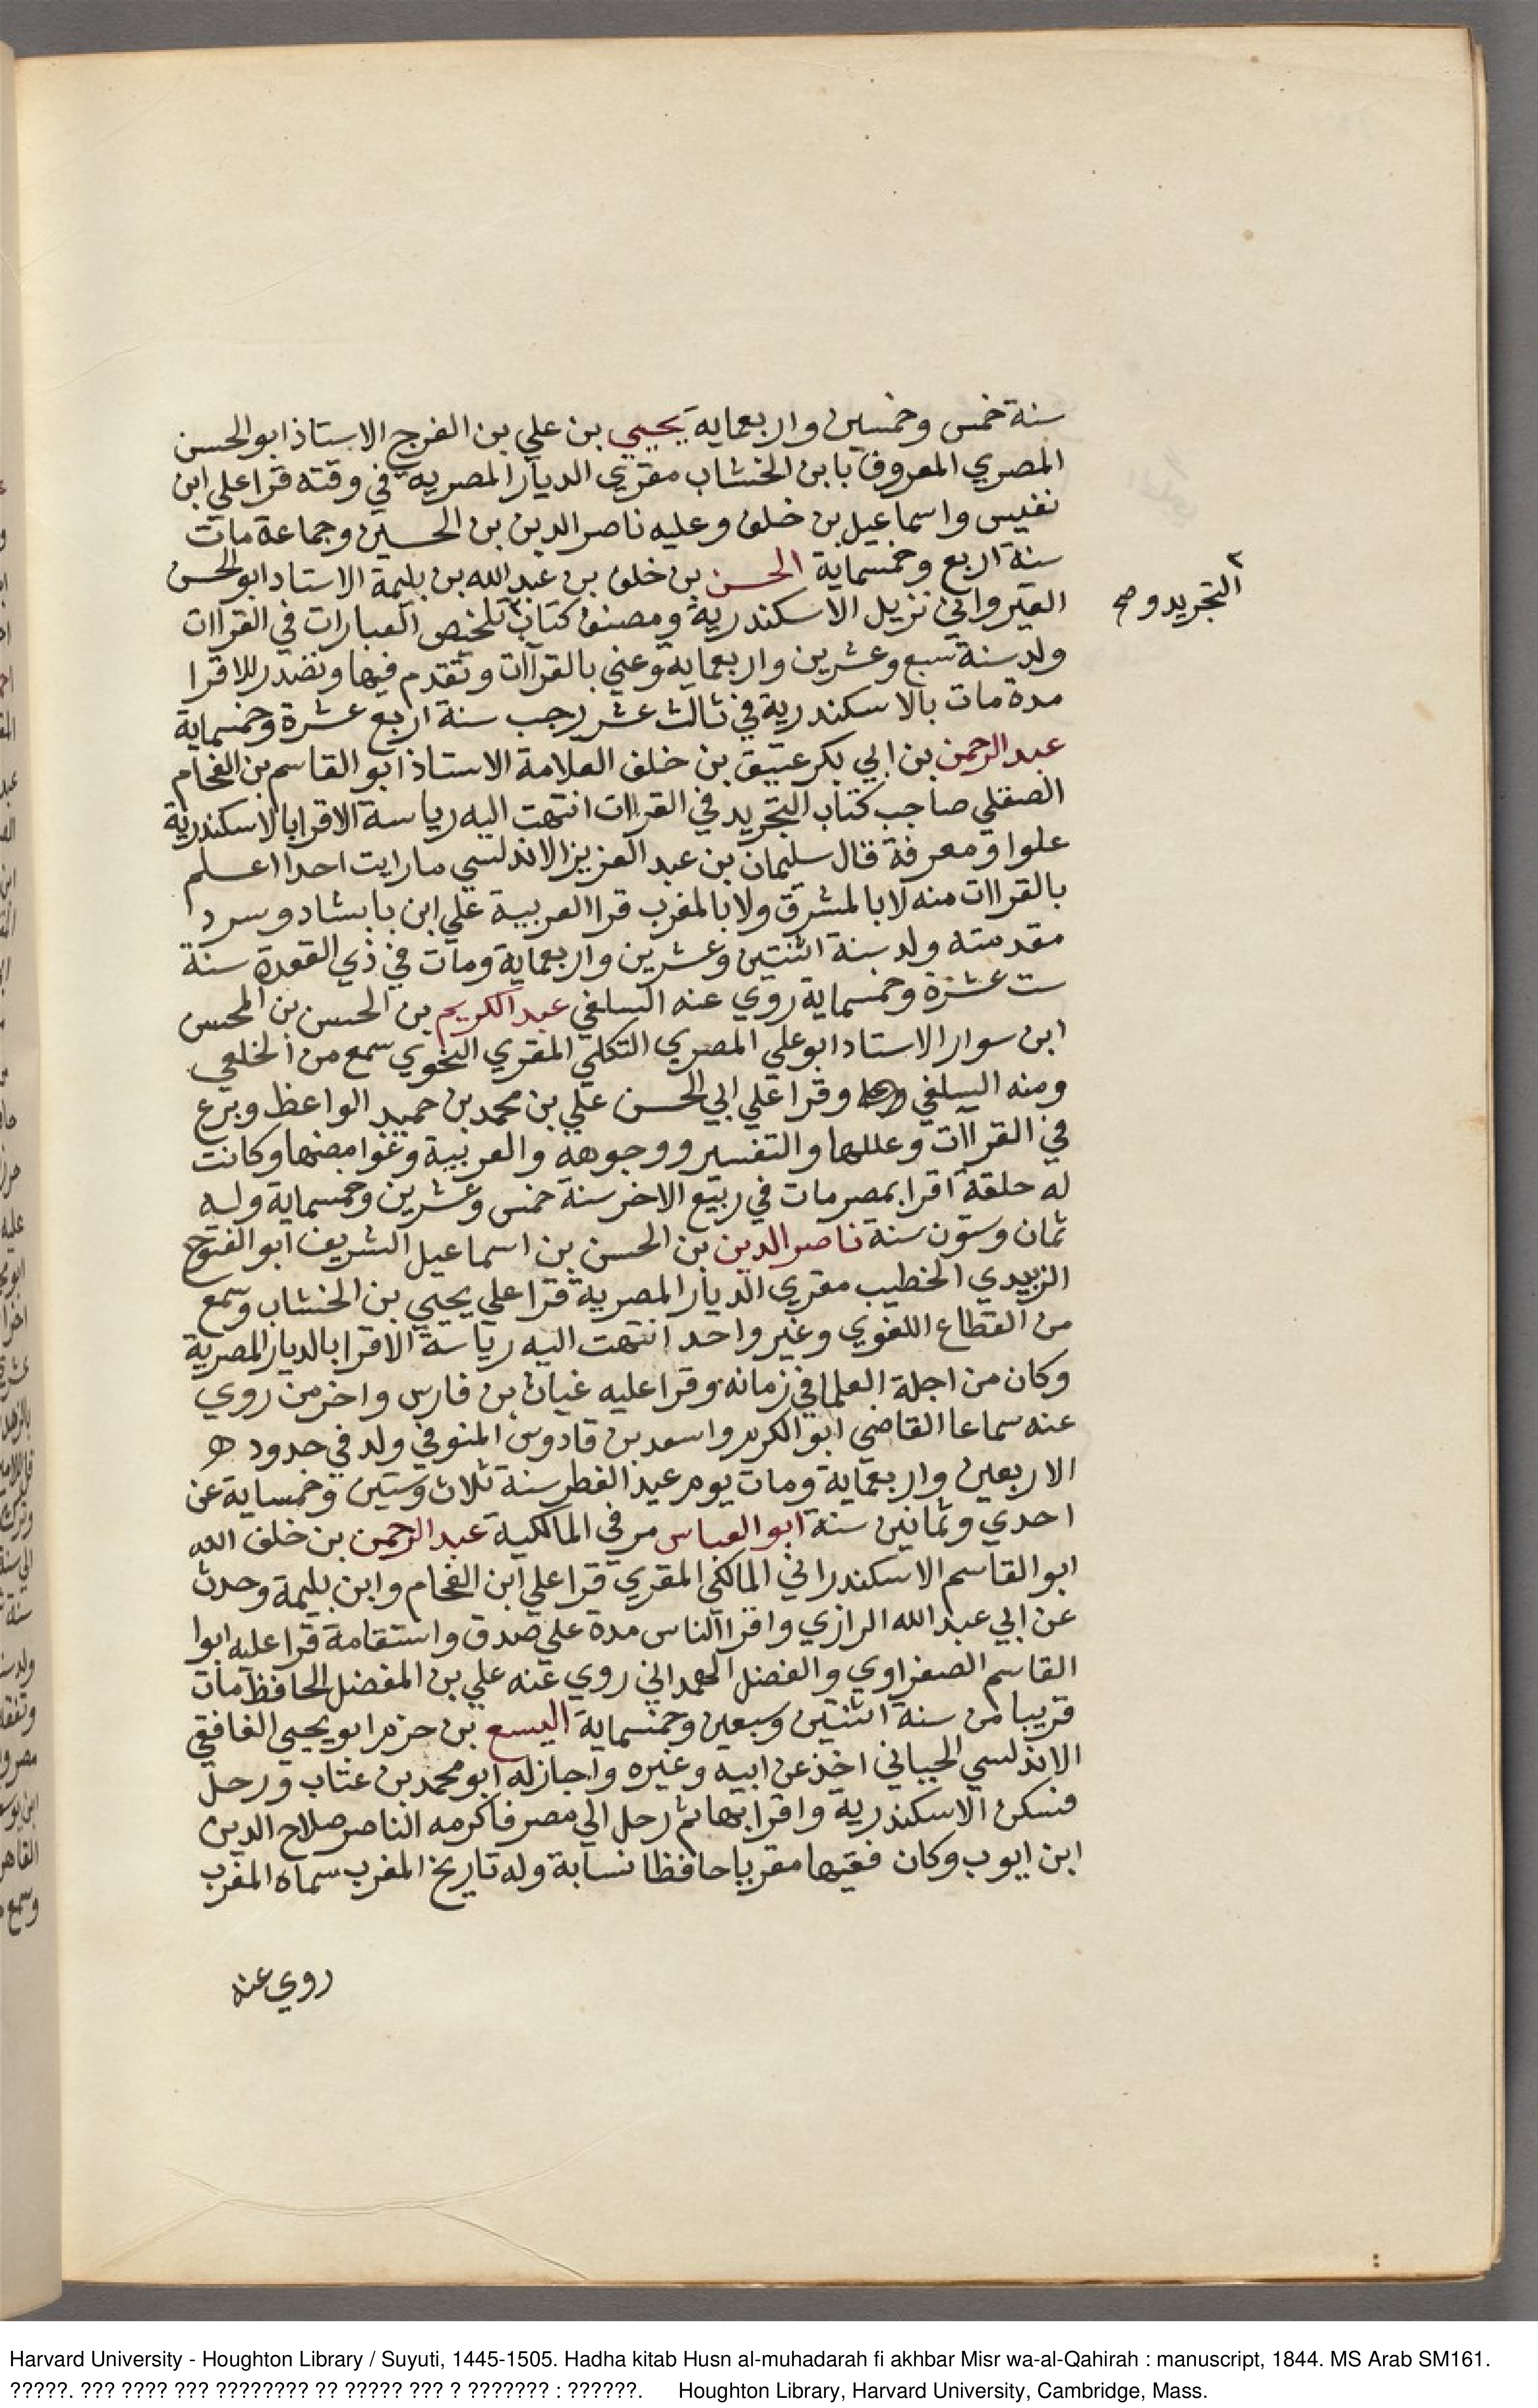 سنة خمس وخمسين واربعماية يحيي بن علي بن الفرج الاستاذ ابو الحسن
المصري المعروف بابن الخشاب مقري الديار المصرية في وقته قرا علي ابن
نفيس واسماعيل بن خلف وعليه ناصر الدين بن الحسين وجماعة مات
سنة اربع وخمسماية الحسن بن خلف بن عبد الله بن بليمة الاستاد ابو الحسن
القيرواني نزيل الاسكندرية ومصنف كتاب تلخيص العبارات في القراات
التجريد وصح
ولد سنة سبع وعشرين واربعماية وعني بالقراآت وتقدم فيها وتصدر للاقرا
مدة مات بالاسكندرية في ثالث عشر رجب سنة اربع عشرة وخمسماية
عبد الرحمن بن ابي بكر عتيق بن خلف العلامة الاستاذ ابو القاسم بن الفحام
الصقلي صاحب كتاب التجريد في القراات انتهت اليه رياسة الاقرا بالاسكندرية
علوا ومعرفة قال سليمان بن عبد العزيز الاندلسي ما رايت احدا اعلم
بالقراات منه لا بالمشرق ولا بالمغرب قرا العربية علي ابن بابشاد وسرد
مقدمته ولد سنة اثنتين وعشرين واربعماية ومات في ذي القعدة سنة
ست عشرة وخمسماية روي عنه السلفي عبد الكريم بن الحسن بن المحسن
ابن سوار الاستاد ابو علي المصري التككي المقري النحوي سمع من الخلعي
ومنه السلفي وقرا علي ابي الحسن علي بن محمد بن حميد الواعظ وبرع
في القراات وعللها والتفسير ووجوهه والعربية وغوامضها وكانت
له حلقة اقرا بمصر مات في ربيع الاخر سنة خمس وعشرين وخمسماية وله
ثمان وستون سنة ناصر الدين بن الحسن بن اسماعيل الشريف ابو الفتوح
الزبيدي الخطيب مقري الديار المصرية قرا علي يحيي بن الخشاب وسمع
من القطاع اللغوي وغير واحد انتهت اليه رياسة الاقرا بالديار المصرية
وكان من اجلة العلما في زمانه وقرا عليه غياث بن فارس واخر من روي
عنه سماعا القاضي ابو الكرم واسعد بن قادوس المنوفي ولد في حدود
الاربعين واربعماية ومات يوم عيد الفطر سنة ثلاث وستين وخمسماية عن
احدي وثمانين سنة ابو العباس مر في المالكية عبد الرحمن بن خلف الله
ابو القاسم الاسكندراني المالكي المقري قرا علي ابن الفحام وابن بليمة وحدث
عن ابي عبد الله الرازي واقرا الناس مدة علي صدق واستقامة قرا عليه ابوا
القاسم الصفراوي والفضل الهمداني روي عنه علي بن المفضل الحافظ مات
قريبا من سنة اثنتين وسبعين وخمسماية اليسع بن حزم ابو يحيي الغافقي
الاندلسي الجياني اخذ عن ابيه وغيره واجاز له ابو محمد بن عتاب ورحل
فسكن الاسكندرية واقرا بها ثم رحل الي مصر فاكرمه الناصر صلاح الدين
ابن ايوب وكان فقيها مقريا حافظا نسابة وله تاريخ المغرب سماه المغرب
روي عنه
Harvard University - Houghton Library / Suyuti, 1445-1505. Hadha kitab Husn al-muhadarah fi akhbar Misr wa-al-Qahirah : manuscript, 1844. MS Arab SM161.
?????. ??? ???? ??? ???????? ?? ????? ??? ? ??????? : ??????. Houghton Library, Harvard University, Cambridge, Mass.